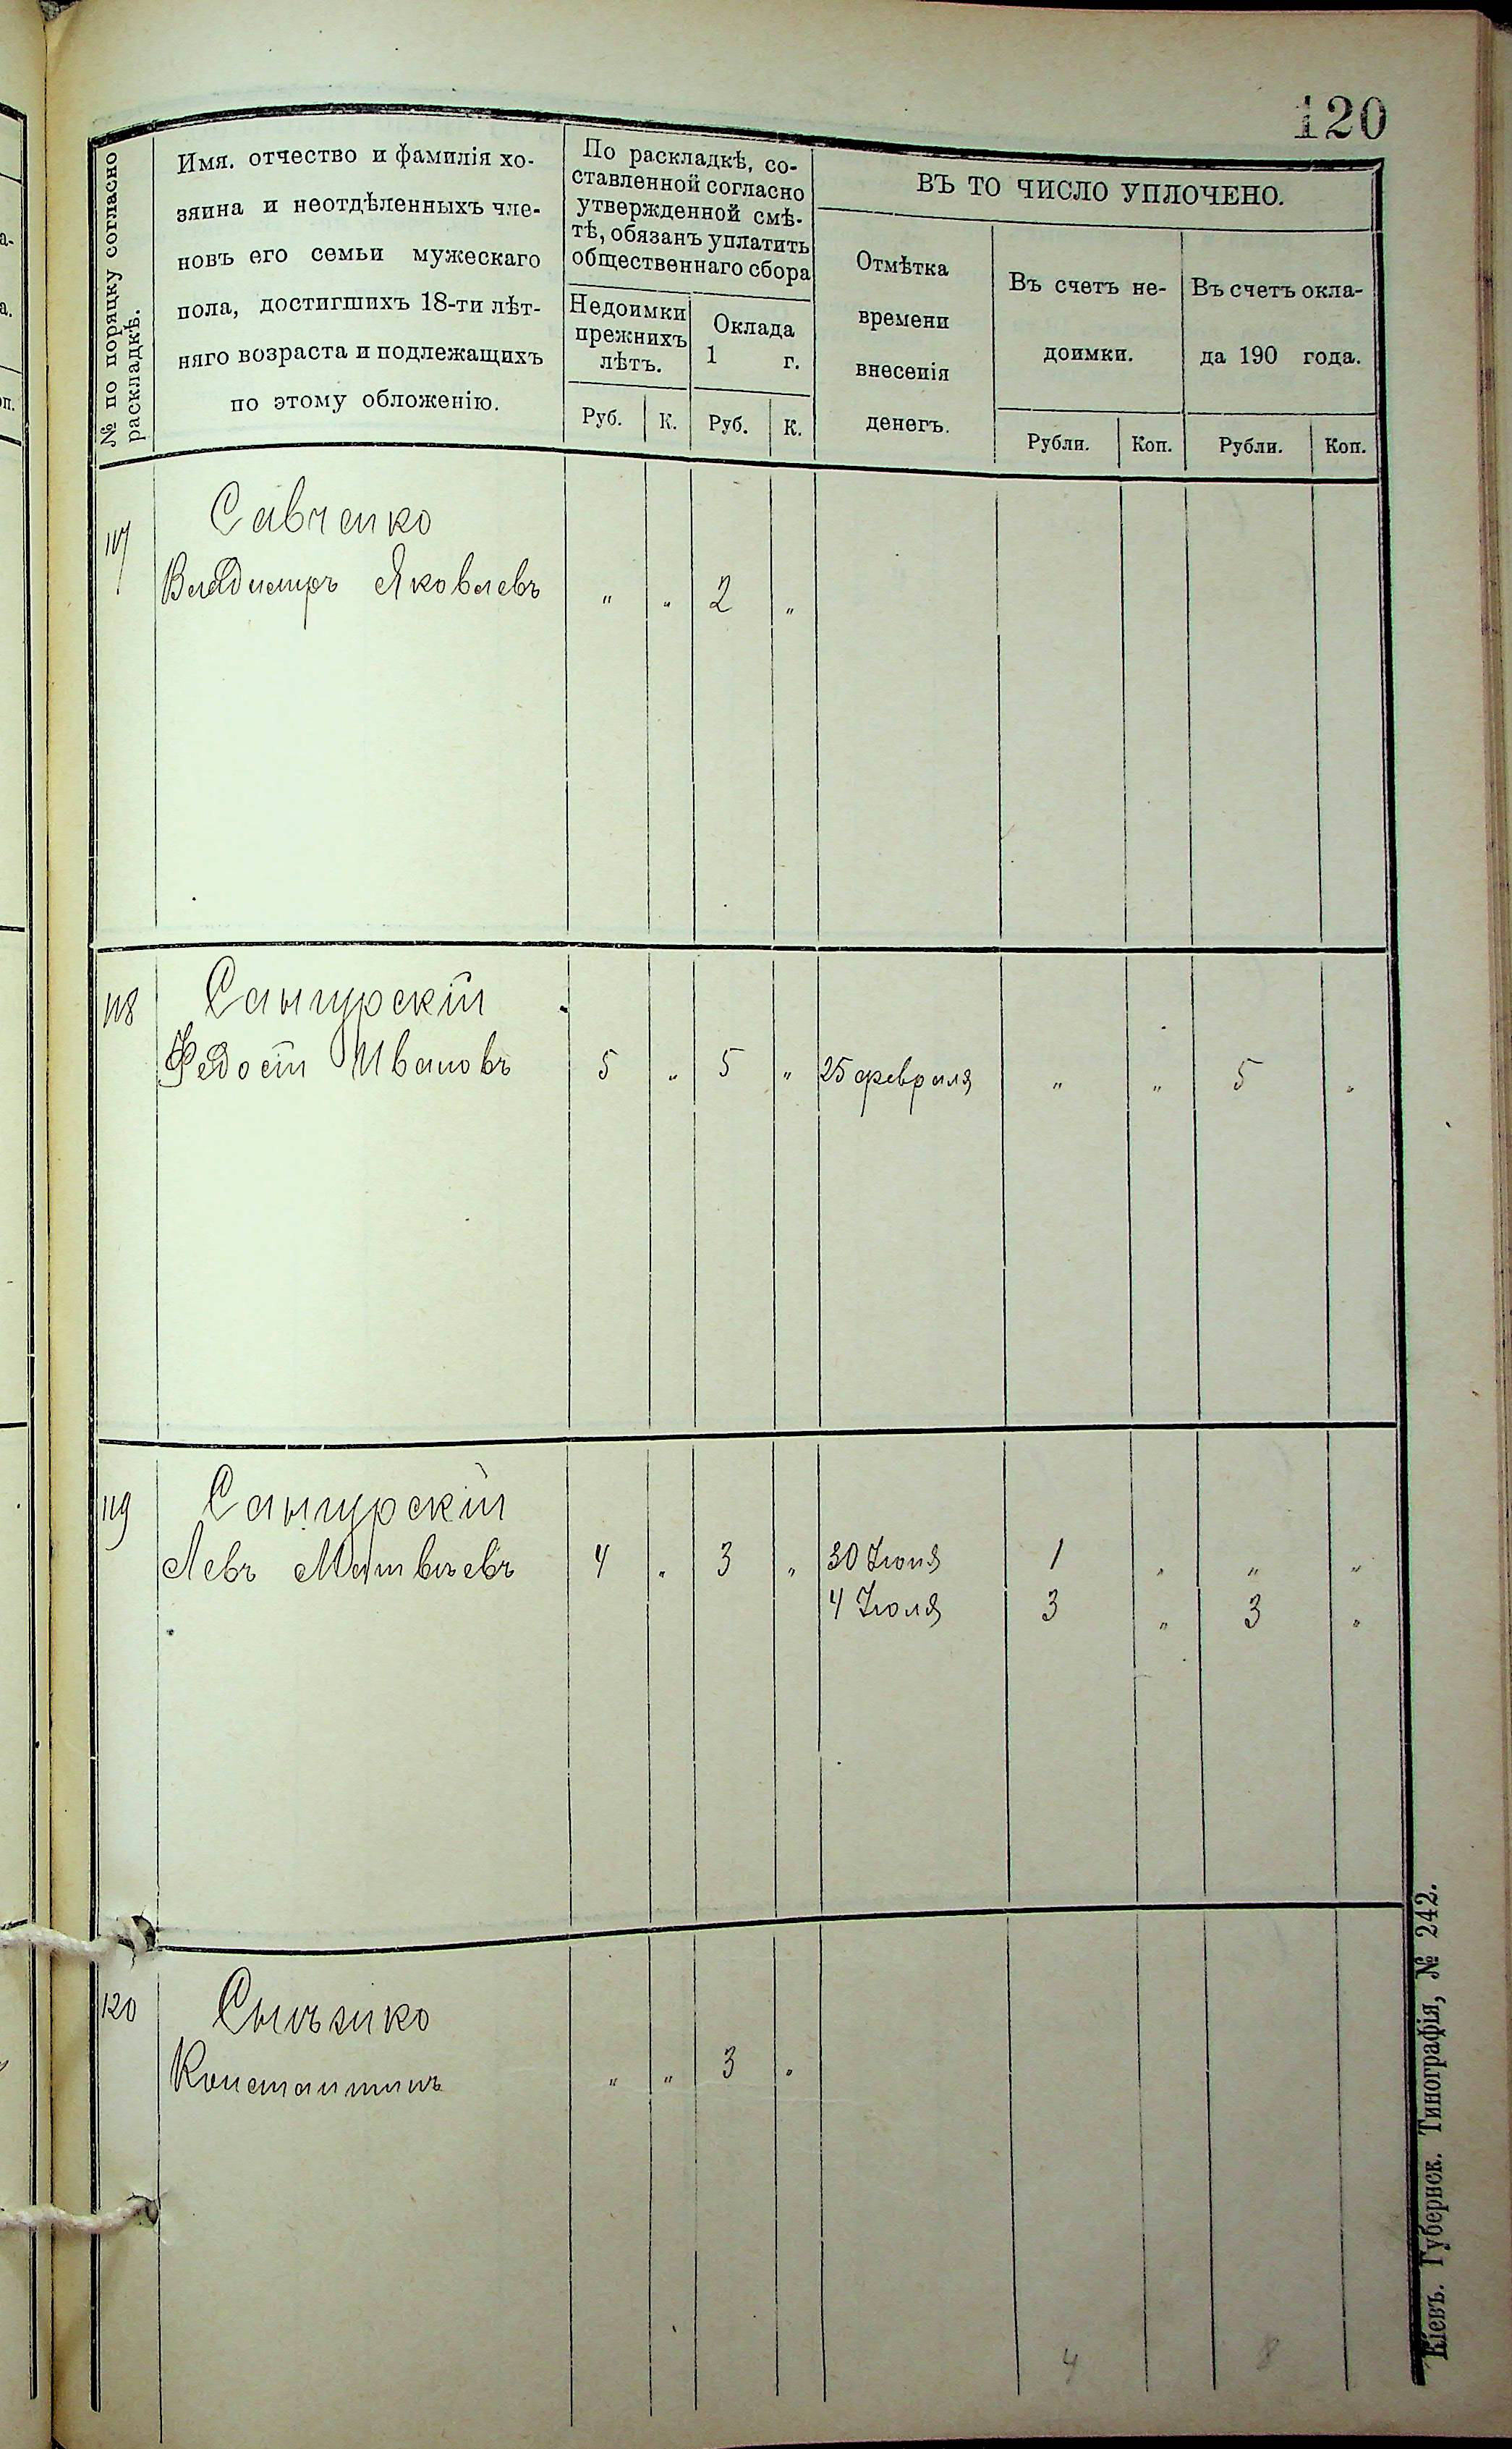 120
№ по порядку согласно
раскладкѣ.
Имя. отчество и фамилія хо-
зяина и неотдѣленныхъ чле-
новъ его семьи мужескаго
пола, достигшихъ 18-ти лѣт-
няго возраста и подлежащихъ
по этому обложенію.
По раскладкѣ, со-
ставленной согласно
утвержденной смѣ-
тѣ, обязанъ уплатить
общественнаго сбора
Недоимки
прежнихъ
лѣтъ.
Оклада
1 г.
Руб. К. Руб. К.
ВЪ ТО ЧИСЛО УПЛОЧЕНО.
Отмѣтка
времени
внесенія
денегъ.
Въ счетъ не-
доимки.
Въ счетъ окла-
да 190 года.
Рубли. Коп. Рубли. Коп.
117 Савченко
Владимиръ Яковлевъ " " 2 "
118
Ивановъ 5 " 5 " 25 февраля " " 5 "
119
Левъ Матвѣевъ 4 " 3 " 30 Іюня 1 " " "
4 Іюля 3 " 3 "
120
Константинъ " " 3 "
4 8
Кіевъ. Губернск. Типографія, № 242.